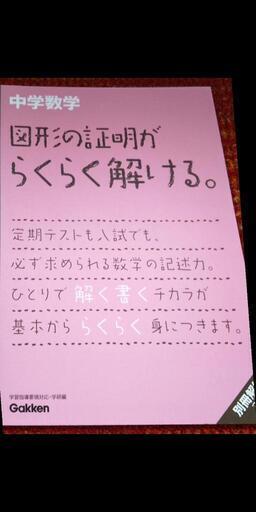 中学数学
図形の証明が
らくらく解ける。
定期テストも入試でも、
必ず求められる数学の記述力。
ひとりで解く書くチカラが
基本かららくらく身につきます。
学習指導要領対応・学研編
Gakken
別冊解